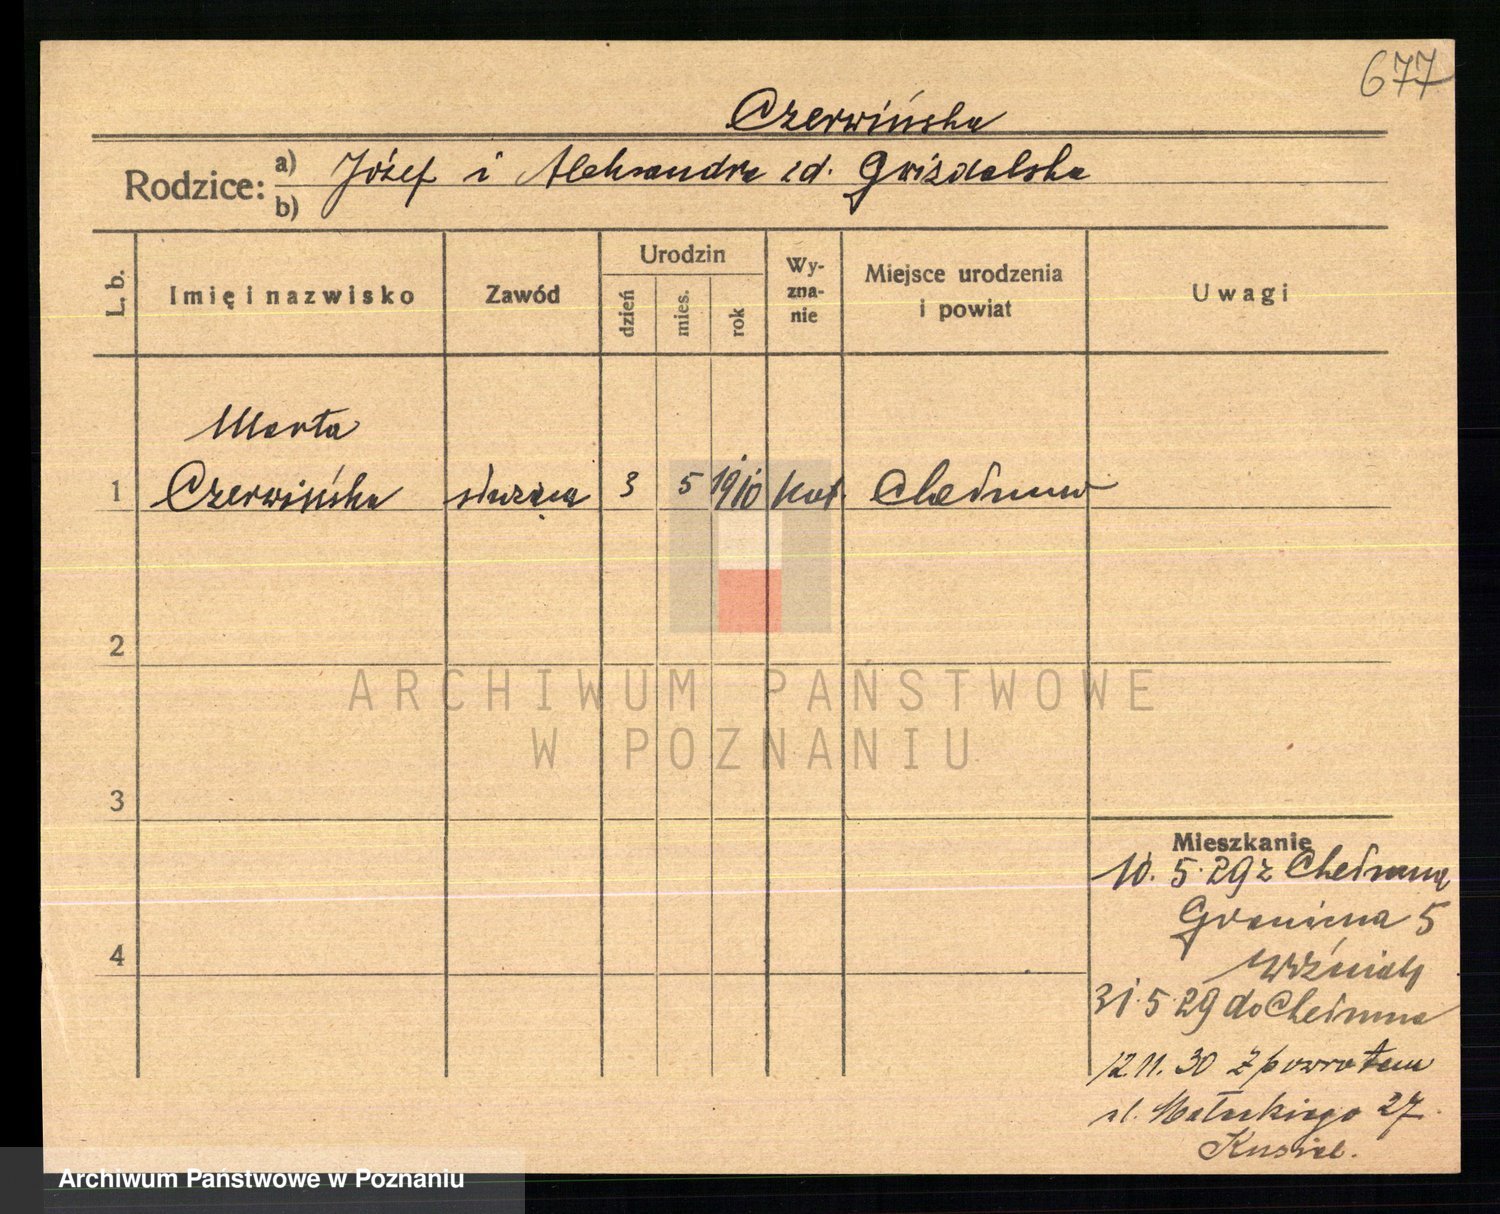 677
Czerwińska
Rodzice: a) Józef i Aleksandra zd. Gwizdalska
b)
L. b. Imię i nazwisko Zawód Urodzin dzień mies. rok Wyznanie Miejsce urodzenia i powiat Uwagi
Marta
1 Czerwińska służąca 3 5 1910 kat. Chełmno
2
ARCHIWUM PAŃSTWOWE
W POZNANIU
3
Mieszkanie
10. 5. 29 z Chełmna
Graniczna 5
4
31. 5. 29 do Chełmna
12.11. 30 z powrotem
ul. 27.
Archiwum Państwowe w Poznaniu